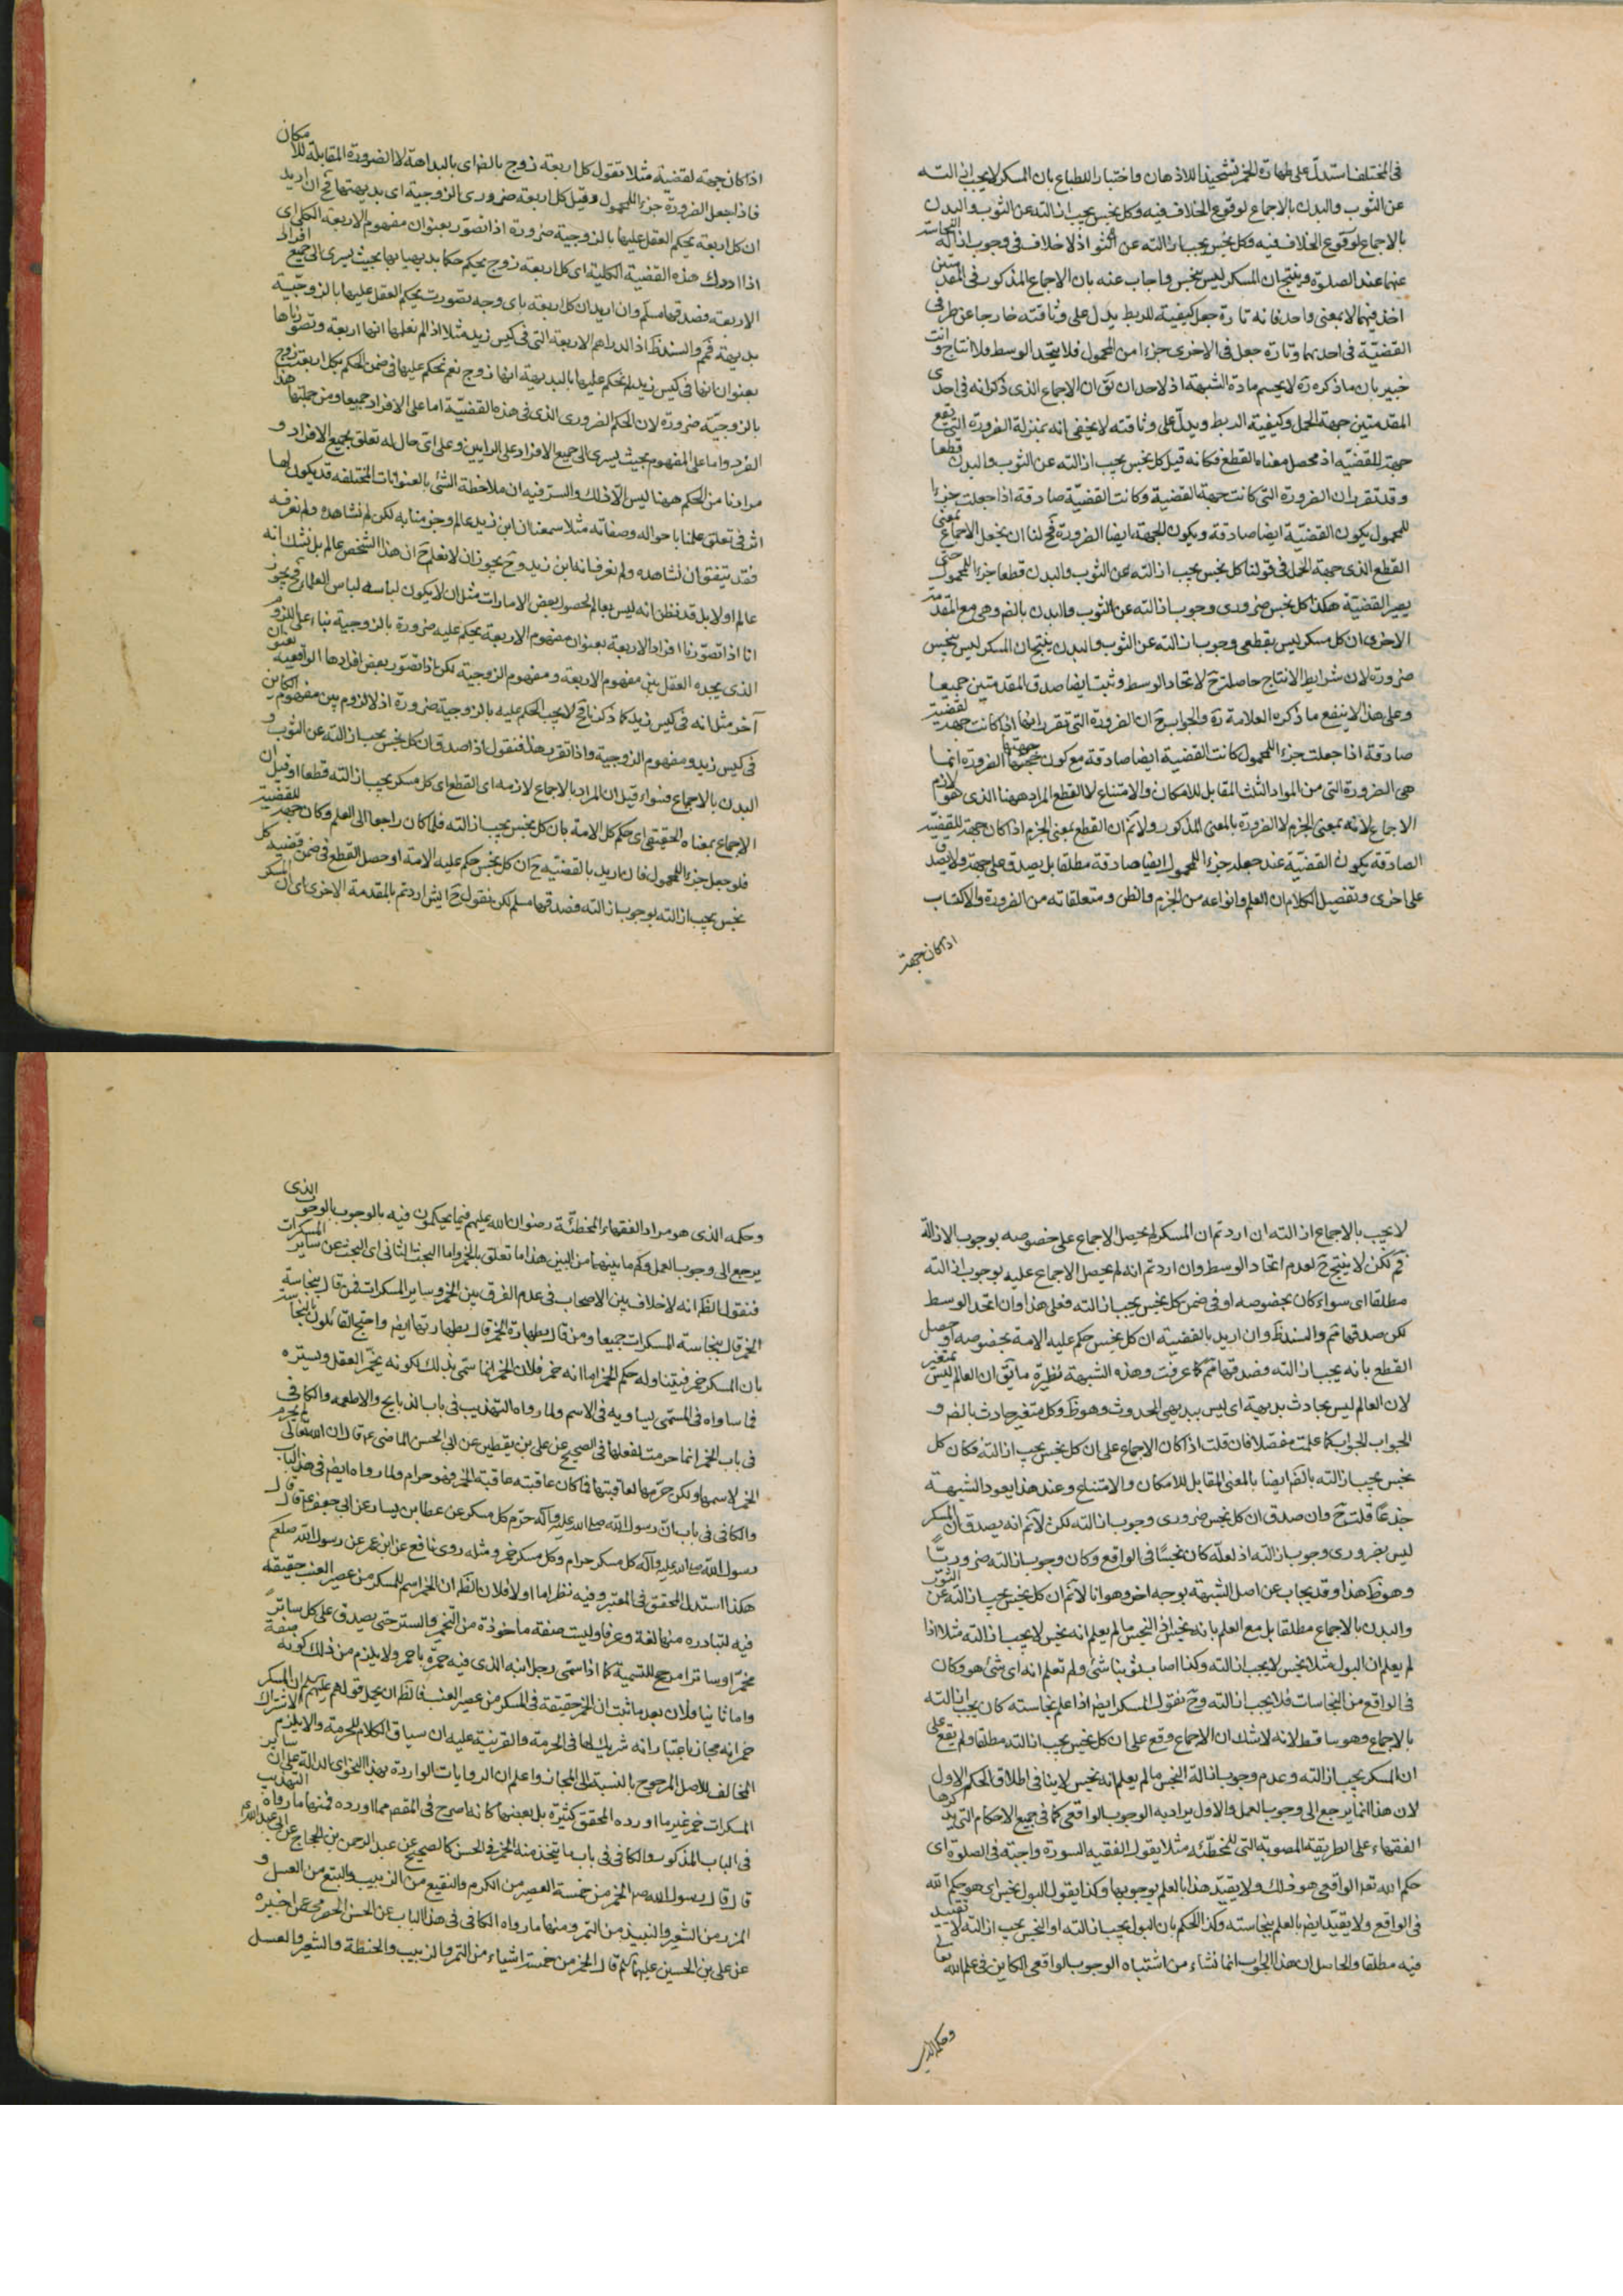 في المختلف استدل على طهارة الخمر تشحيذا للاذهان واختبارا للطباع بان المسكر لا يجب ازالته
عن الثوب والبدن بالاجماع لوقوع الخلاف فيه وكل نجس يجب ازالته عن الثوب والبدن
بالاجماع لوقوع الخلاف فيه وكل نجس يجب ازالته عن الثو اذ لا خلاف في وجوب ازالة النجاسة
عنهما عند الصلوة وينتج ان المسكر ليس بنجس واجاب عنه بان الاجماع المذكور في المقدمتين
اخذ فيهما لا بمعنى واحد فانه تارة جعل كيفية للربط يدل على وثاقته خارجا عن طرفي
القضية في احديهما وتارة جعل في الاخرى جزءا من المحمول فلا يتحد الوسط فلا انتاج وانت
خبير بان ما ذكره ره لا يحسم مادة الشبهة اذ لاحد ان يق ان الاجماع الذي ذكرانه في احدى
المقدمتين جهة الحمل وكيفية الربط ويدل على وثاقته لا يخفى انه بمنزلة الضرورة التي يقع
جهة للقضية اذ محصل معناه القطع فكانه قيل كل نجس يجب ازالته عن الثوب والبدن قطعا
وقد تقرر ان الضرورة التي كانت جهة القضية وكانت القضية صادقة اذا جعلت جزءا
للمحمول يكون القضية ايضا صادقة ويكون الجهة ايضا الضرورة فح لنا ان نجعل الاجماع بمعنى
القطع الذي جهة الحمل في قولنا كل نجس يجب ازالته عن الثوب والبدن قطعا جزءا للمحمول حتى
يصير القضية هكذا كل نجس ضروري وجوب ازالته عن الثوب والبدن بالضر وهي مع المقدمة
الاخرى ان كل مسكر ليس بقطعي وجوب ازالته عن الثوب والبدن ينتج ان المسكر ليس بنجس
ضرورة لان شرايط الانتاج حاصلة ح لاتحاد الوسط وثبت ايضا صدق المقدمتين جميعا
وعلى هذا لا ينفع ما ذكره العلامة ره والجواب ح ان الضرورة التي تقرر انها اذا كانت جهة لقضية
صادقة اذا جعلت جزء المحمول كانت القضية ايضا صادقة مع كون جهتها الضرورة انما
هي الضرورة التي من المواد الثلث المقابل للامكان والامتناع لا القطع المراد ههنا الذي هو لازم
الاجماع لانه بمعنى الجزم لا الضرورة بالمعنى المذكور ولا نم ان القطع بمعنى الجزم اذا كان جهة للقضية
الصادقة يكون القضية عند جعله جزء المحمول ايضا صادقة مطلقا بل يصدق على جهة ولا يصدق
على اخرى وتفصيل الكلام ان العلم وانواعه من الجزم والظن ومتعلقاته من الضرورة والاكتساب
اذا كان جهة
اذا كان جهة لقضية مثلا تقول كل اربعة زوج بالضر اي بالبداهة لا الضرورة المقابلة للامكان
فاذا جعل الضرورة جزء المحمول وقيل كل اربعة ضروري الزوجية اي بديهتها فح ان اريد
ان كل اربعة يحكم العقل عليها بالزوجية ضرورة اذا تصور بعنوان مفهوم الاربعة الكلي اي
اذا ادرك هذه القضية الكلية اي كل اربعة زوج يحكم حكما بديهيا بها بحيث يسري الى جميع افراد
الاربعة فصدقها مسلم وان اريد ان كل اربعة باي وجه تصورت يحكم العقل عليها بالزوجية
بديهة فمم والسند ظ اذ الدراهم الاربعة التي في كيس زيد مثلا اذا لم نعلمها انها اربعة وتصورناها
بعنوان انها في كيس زيد لم نحكم عليها بالبديهة انها زوج نعم نحكم عليها في ضمن الحكم بكل اربعة زوج
بالزوجية ضرورة لان الحكم الضروري الذي في هذه القضية اما على الافراد جميعا ومن جملتها هذا
الفرد واما على المفهوم بحيث يسري الى جميع الافراد على الرايين وعلى اي حال له تعلق بجميع الافراد و
مرادنا من الحكم ههنا ليس الا ذلك والسر فيه ان ملاحظة الشئ بالعنوانات المختلفة قد يكون لها
اثر في تعلق علمنا باحواله وصفاته مثلا سمعنا ان ابن زيد عالم وجزمنا به لكن لم نشاهده ولم نعرفه
فقد يتفق ان نشاهده ولم نعرف انه ابن زيد وح يجوز ان لا نعلم ح ان هذا الشخص عالم بل نشك انه
عالم او لا بل قد نظن انه ليس بعالم لحصول بعض الامارات مثل ان لا يكون لباسه لباس العلماء فح يجوز
انا اذا تصورنا افراد الاربعة بعنوان مفهوم الاربعة يحكم عليه ضرورة بالزوجية بناء على اللزوم
الذي يجده العقل بين مفهوم الاربعة ومفهوم الزوجية لكن اذا تصور بعض افرادها الواقعية بعنوان
آخر مثل انه في كيس زيد كما ذكرنا فح لا يجب الحكم عليه بالزوجية ضرورة اذ لا لزوم بين مفهوم الكاين
في كيس زيد ومفهوم الزوجية واذا تقرر هذا فنقول اذا صدق ان كل نجس يجب ازالته عن الثوب و
البدن بالاجماع فسواء قيل ان المراد بالاجماع لازمه اي القطع اي كل مسكر يجب ازالته قطعا او قيل ان
الاجماع بمعناه الحقيقي اي حكم كل الامة بان كل نجس يجب ازالته فلما كان راجعا الى العلم وكان جهة للقضية
فلو جعل جزء المحمول فان اريد بالقضية ح ان كل نجس حكم عليه الامة او حصل القطع في ضمن قضية كل
نجس يجب ازالته بوجوب ازالته فصدقها مسلم لكن نقول ح ايش اردتم بالمقدمة الاخرى اي ان المسكر
لا يجب بالاجماع ازالته ان اردتم ان المسكر لم يحصل الاجماع على خصوصه بوجوب الازالة
فم لكن لا ينتج ح لعدم اتحاد الوسط وان اردتم انه لم يحصل الاجماع عليه بوجوب ازالته
مطلقا اي سواء كان بخصوصه او في ضمن كل نجس يجب ازالته فعلى هذا وان اتحد الوسط
لكن صدقها مم والسند ظ وان اريد بالقضية ان كل نجس حكم عليه الامة بخصوصه او حصل
القطع بانه يجب ازالته فصدقها مم كما عرفت وهذه الشبهة نظيرة ما يق ان العالم ليس بمتغير
لان العالم ليس بحادث بديهة اي ليس ببديهي الحدوث وهو ظ وكل متغير حادث بالضر و
الجواب الجواب كما علمت مفصلا فان قلت اذا كان الاجماع على ان كل نجس يجب ازالته فكان كل
نجس يجب ازالته بالضر ايضا بالمعنى المقابل للامكان والامتناع وعند هذا يعود الشبهة
جذعا قلت ح وان صدق ان كل نجس ضروري وجوب ازالته لكن لا نم انه يصدق ان المسكر
ليس بضروري وجوب ازالته اذ لعله كان نجسا في الواقع وكان وجوب ازالته ضروريا
وهو ظ هذا وقد يجاب عن اصل الشبهة بوجه اخر وهو انا لا نم ان كل نجس يجب ازالته عن الثوب
والبدن بالاجماع مطلقا بل مع العلم بانه نجس اذ النجس ما لم يعلم انه نجس لا يجب ازالته مثلا اذا
لم يعلم ان البول مثلا نجس لا يجب ازالته وكذا اصاب ثوبنا شئ ولم نعلم انه اي شئ هو وكان
في الواقع من النجاسات فلا يجب ازالته وح نقول المسكر ايضا اذا علم نجاسته كان يجب ازالته
بالاجماع وهو ساقط لانه لا شك ان الاجماع وقع على ان كل نجس يجب ازالته مطلقا ولم يقع على
ان المسكر يجب ازالته وعدم وجوب ازالة النجس ما لم يعلم انه نجس لا ينافي اطلاق الحكم الاول
لان هذا انما يرجع الى وجوب العمل والاول يراد به الوجوب الواقعي كما في جميع الاحكام التي يذكرها
الفقهاء على الطريقة المصوبة التي للمخطئة مثلا يقول الفقيه السورة واجبة في الصلوة اي
حكم الله تعالى الواقعي هو ذلك ولا يقيد هذا بالعلم بوجوبها وكذا يقول البول نجس اي هو حكم الله
في الواقع ولا يقيد ايضا بالعلم بنجاسته وكذا الحكم بان البول يجب ازالته او النجس يجب ازالته لا تقييد
فيه مطلقا والحاصل ان هذا الجواب انما نشاء من اشتباه الوجوب الواقعي الكاين في علم الله تعالى
وحكمه الذي
وحكمه الذي هو مراد الفقهاء المخطئة رضوان الله عليهم فيما يحكمون فيه بالوجوب بالوجوب الذي
يرجع الى وجوب العمل وكم ما بينهما من البين هذا ما تعلق بالخمر واما البحث الثاني اي البحث عن ساير المسكرات
فنقول الظ انه لا خلاف بين الاصحاب في عدم الفرق بين الخمر وساير المسكرات فمن قال بنجاسة
الخمر قال بنجاسة المسكرات جميعا ومن قال بطهارة الخمر قال بطهارتها ايضا واحتج القائلون بالنجاسة
بان المسكر خمر فيتناوله حكم الخمر اما انه خمر فلان الخمر انما سمي بذلك لكونه يخمر العقل ويستره
فما ساواه في المسمى يساويه في الاسم ولما رواه التهذيب في باب الذبايح والاطعمه والكافي
في باب الخمر انما حرمت لفعلها في الصحيح عن علي بن يقطين عن ابي الحسن الماضي ع قال ان الله تعالى لم يحرم
الخمر لاسمها ولكن حرمها لعاقبتها فما كان عاقبته عاقبة الخمر فهو حرام ولما رواه ايضا في هذا الباب
والكافي في باب ان رسول الله صلى الله عليه وآله حرم كل مسكر عن عطا بن يسار عن ابي جعفر ع قال قال
رسول الله صلى الله عليه وآله كل مسكر حرام وكل مسكر خمر ومثله روى نافع عن ابن عمر عن رسول الله صلعم
هكذا استدل المحقق في المعتبر وفيه نظر اما اولا فلان الظ ان الخمر اسم للمسكر من عصير العنب حقيقة
فيه لتبادره منها لغة وعرفا وليست صفة ماخوذة من التخمير والستر حتى يصدق على كل ساتر
مخمرا وساترا مرجح للتسمية كما اذا سمى رجل ابنه الذي فيه حمرة باحمر ولا يلزم من ذلك كونه صفة
واما ثانيا فلان بعد ما ثبت ان الخمر حقيقة في المسكر من عصير العنب فالظ ان يحمل قولهم عليهم السلام ان المسكر
خمر انه مجاز باعتبار انه شريك لها في الحرمة والقرينة عليه ان سياق الكلام للحرمة والا يلزم الاشتراك
المخالف للاصل المرجوح بالنسبة الى المجاز واعلم ان الروايات الواردة بهذا النحو اي الدالة على ان ساير
المسكرات خمر غير ما اورده المحقق كثيرة بل بعضها كانه اصرح في المقصد مما اورده فمنها ما رواه التهذيب
في الباب المذكور والكافي في باب ما يتخذ منه الخمر في الحسن كالصحيح عن عبد الرحمن بن الحجاج عن ابي عبد الله ع
قال قال رسول الله ص الخمر من خمسة العصير من الكرم والنقيع من الزبيب والبتع من العسل و
المزر من الشعير والنبيذ من التمر ومنها ما رواه الكافي في هذا الباب عن الحسن الحضرمي عمن اخبره
عن علي بن الحسين عليهما السلم قال الخمر من خمسة اشياء من التمر والزبيب والحنطة والشعير والعسل